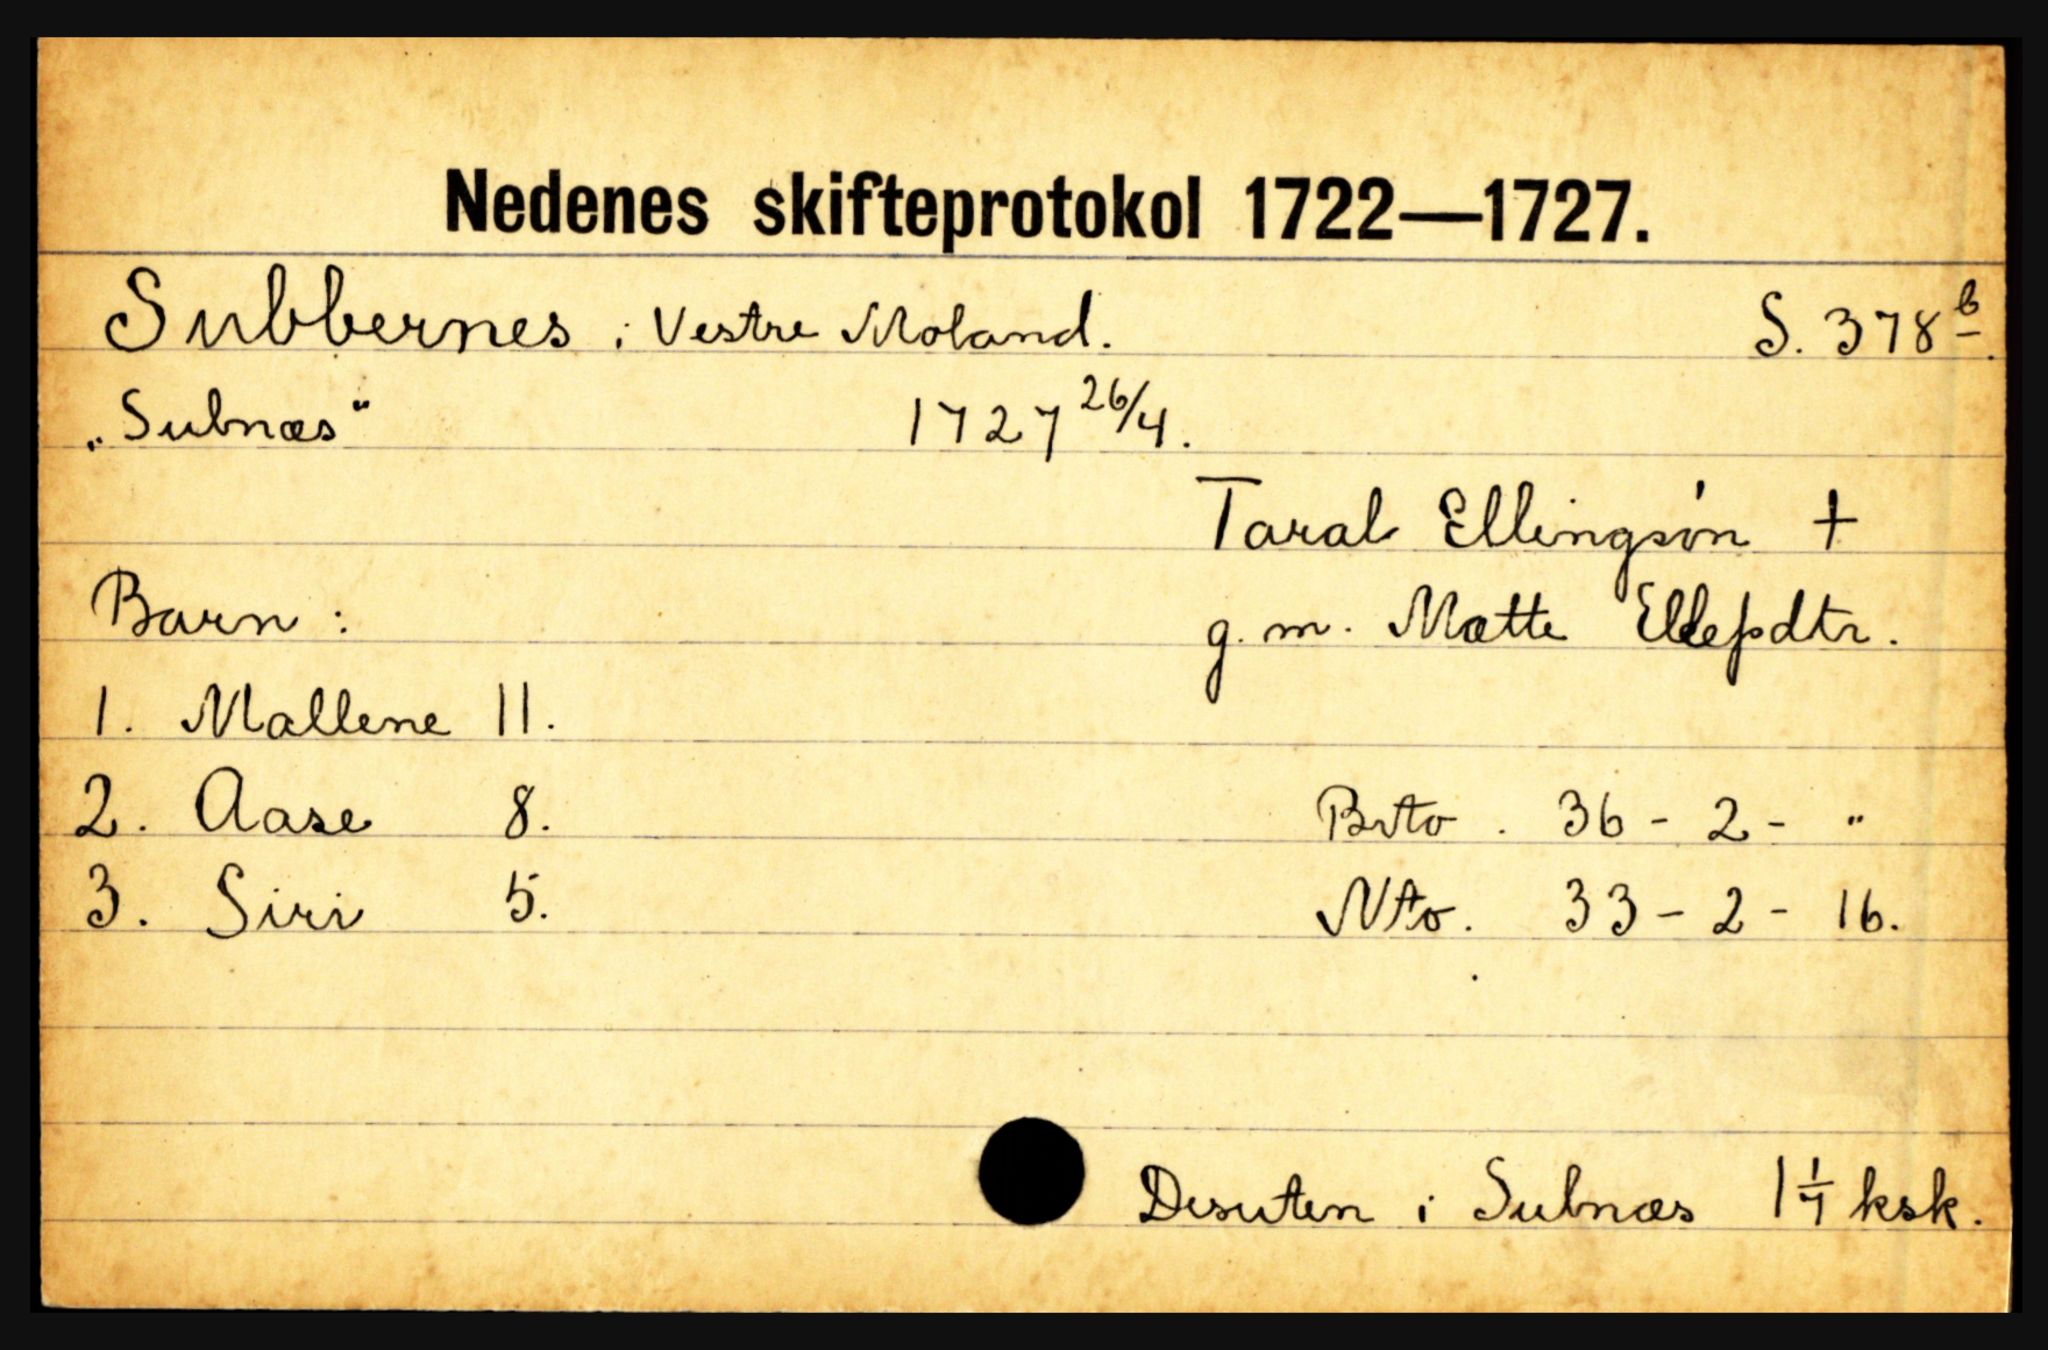 Nedenes skifteprotokol 1722—1727.
Subbernes i Vestre Moland. S. 378 b.
„Subnæs“ 1727 26/4.
Taral Ellingsøn +
Barn: g. m. Mætte Ellefsdtr.
1. Mallene 11.
2. Aase 8. Brto. 36 - 2 - "
3. Siri 5. Nto. 33 - 2 - 16.
Desuten i Subnæs 1 1/7 ksk.